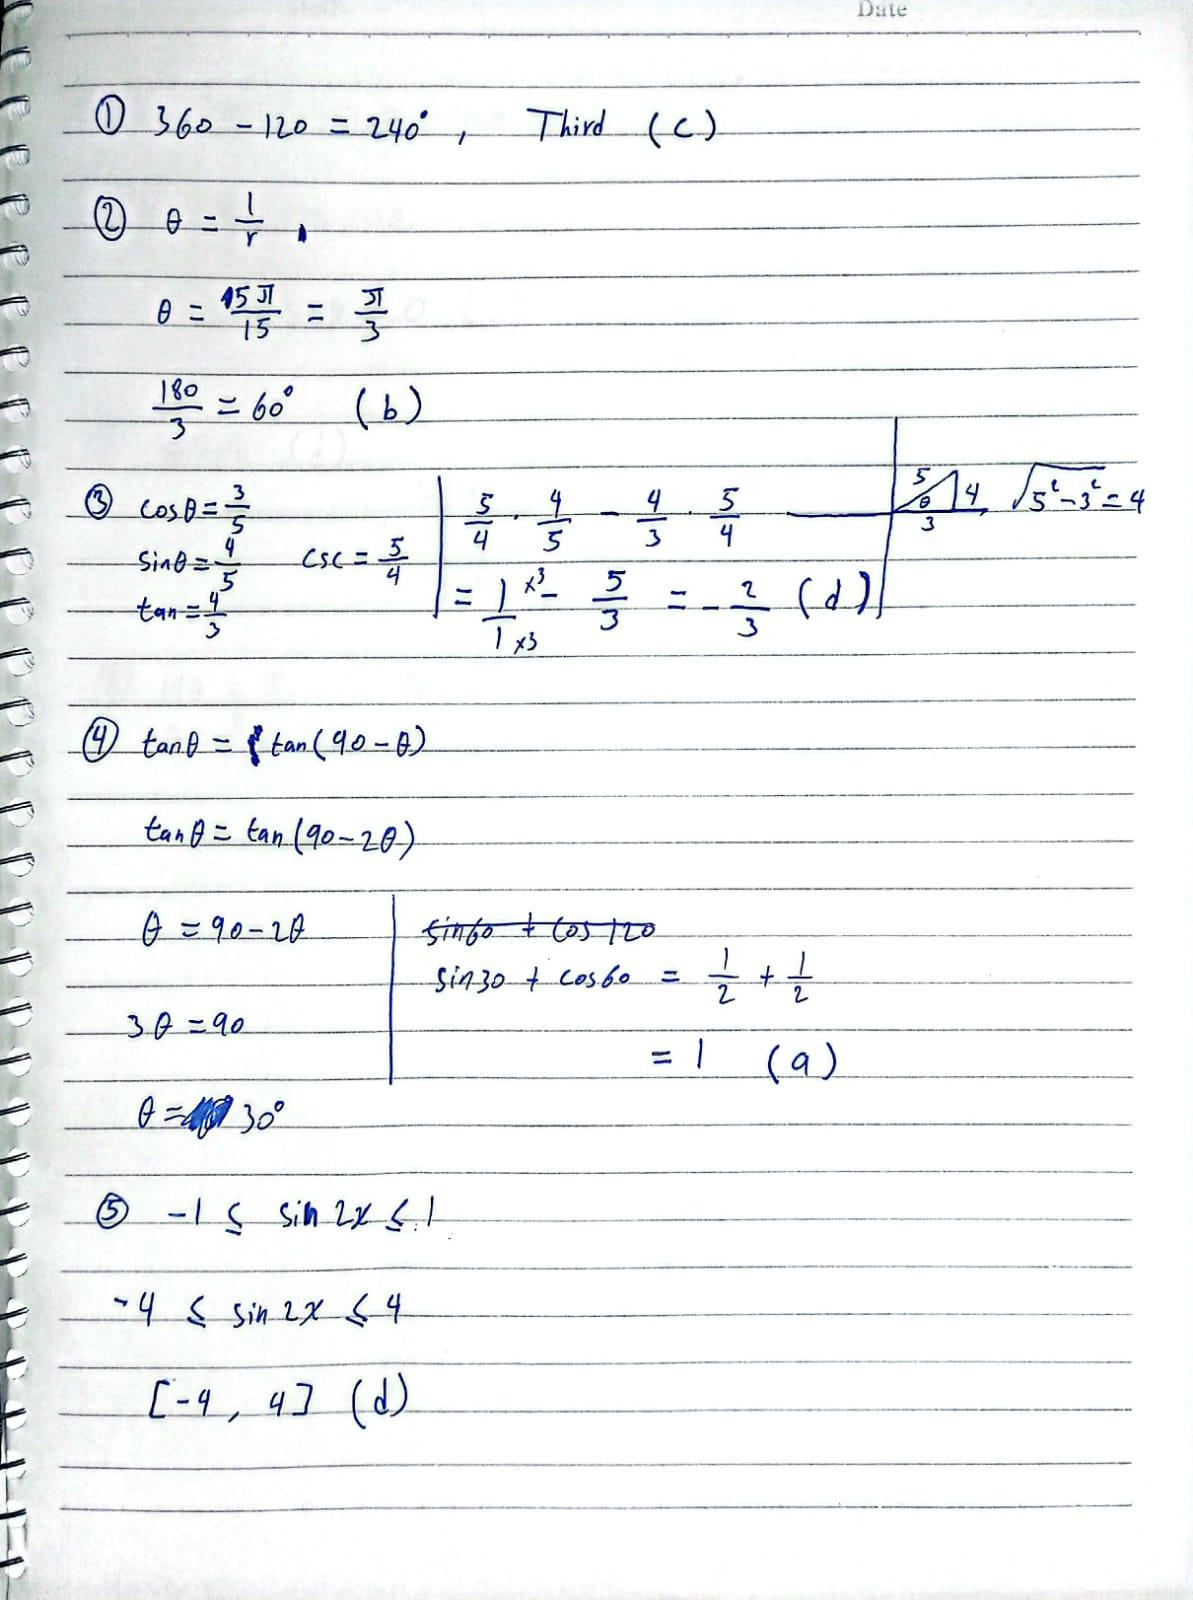 Date
① 360 - 120 = 240°, Third (c)
② θ = l/r
θ = 5π/15 = π/3
180/3 = 60° (b)
③ cosθ = 3/5
sinθ = 4/5 csc = 5/4
tan = 4/3
5/4 · 4/5 - 4/3 · 5/4
= 1/1 ×3/×3 - 5/3 = -2/3 (d)
5 θ 4 3 √5² - 3² = 4
④ tanθ = tan(90 - θ)
tanθ = tan(90 - 2θ)
θ = 90 - 2θ
3θ = 90
θ = 30°
sin60 + cos120
sin30 + cos60 = 1/2 + 1/2
= 1 (a)
⑤ -1 ≤ sin 2x ≤ 1
-4 ≤ sin 2x ≤ 4
[-4, 4] (d)